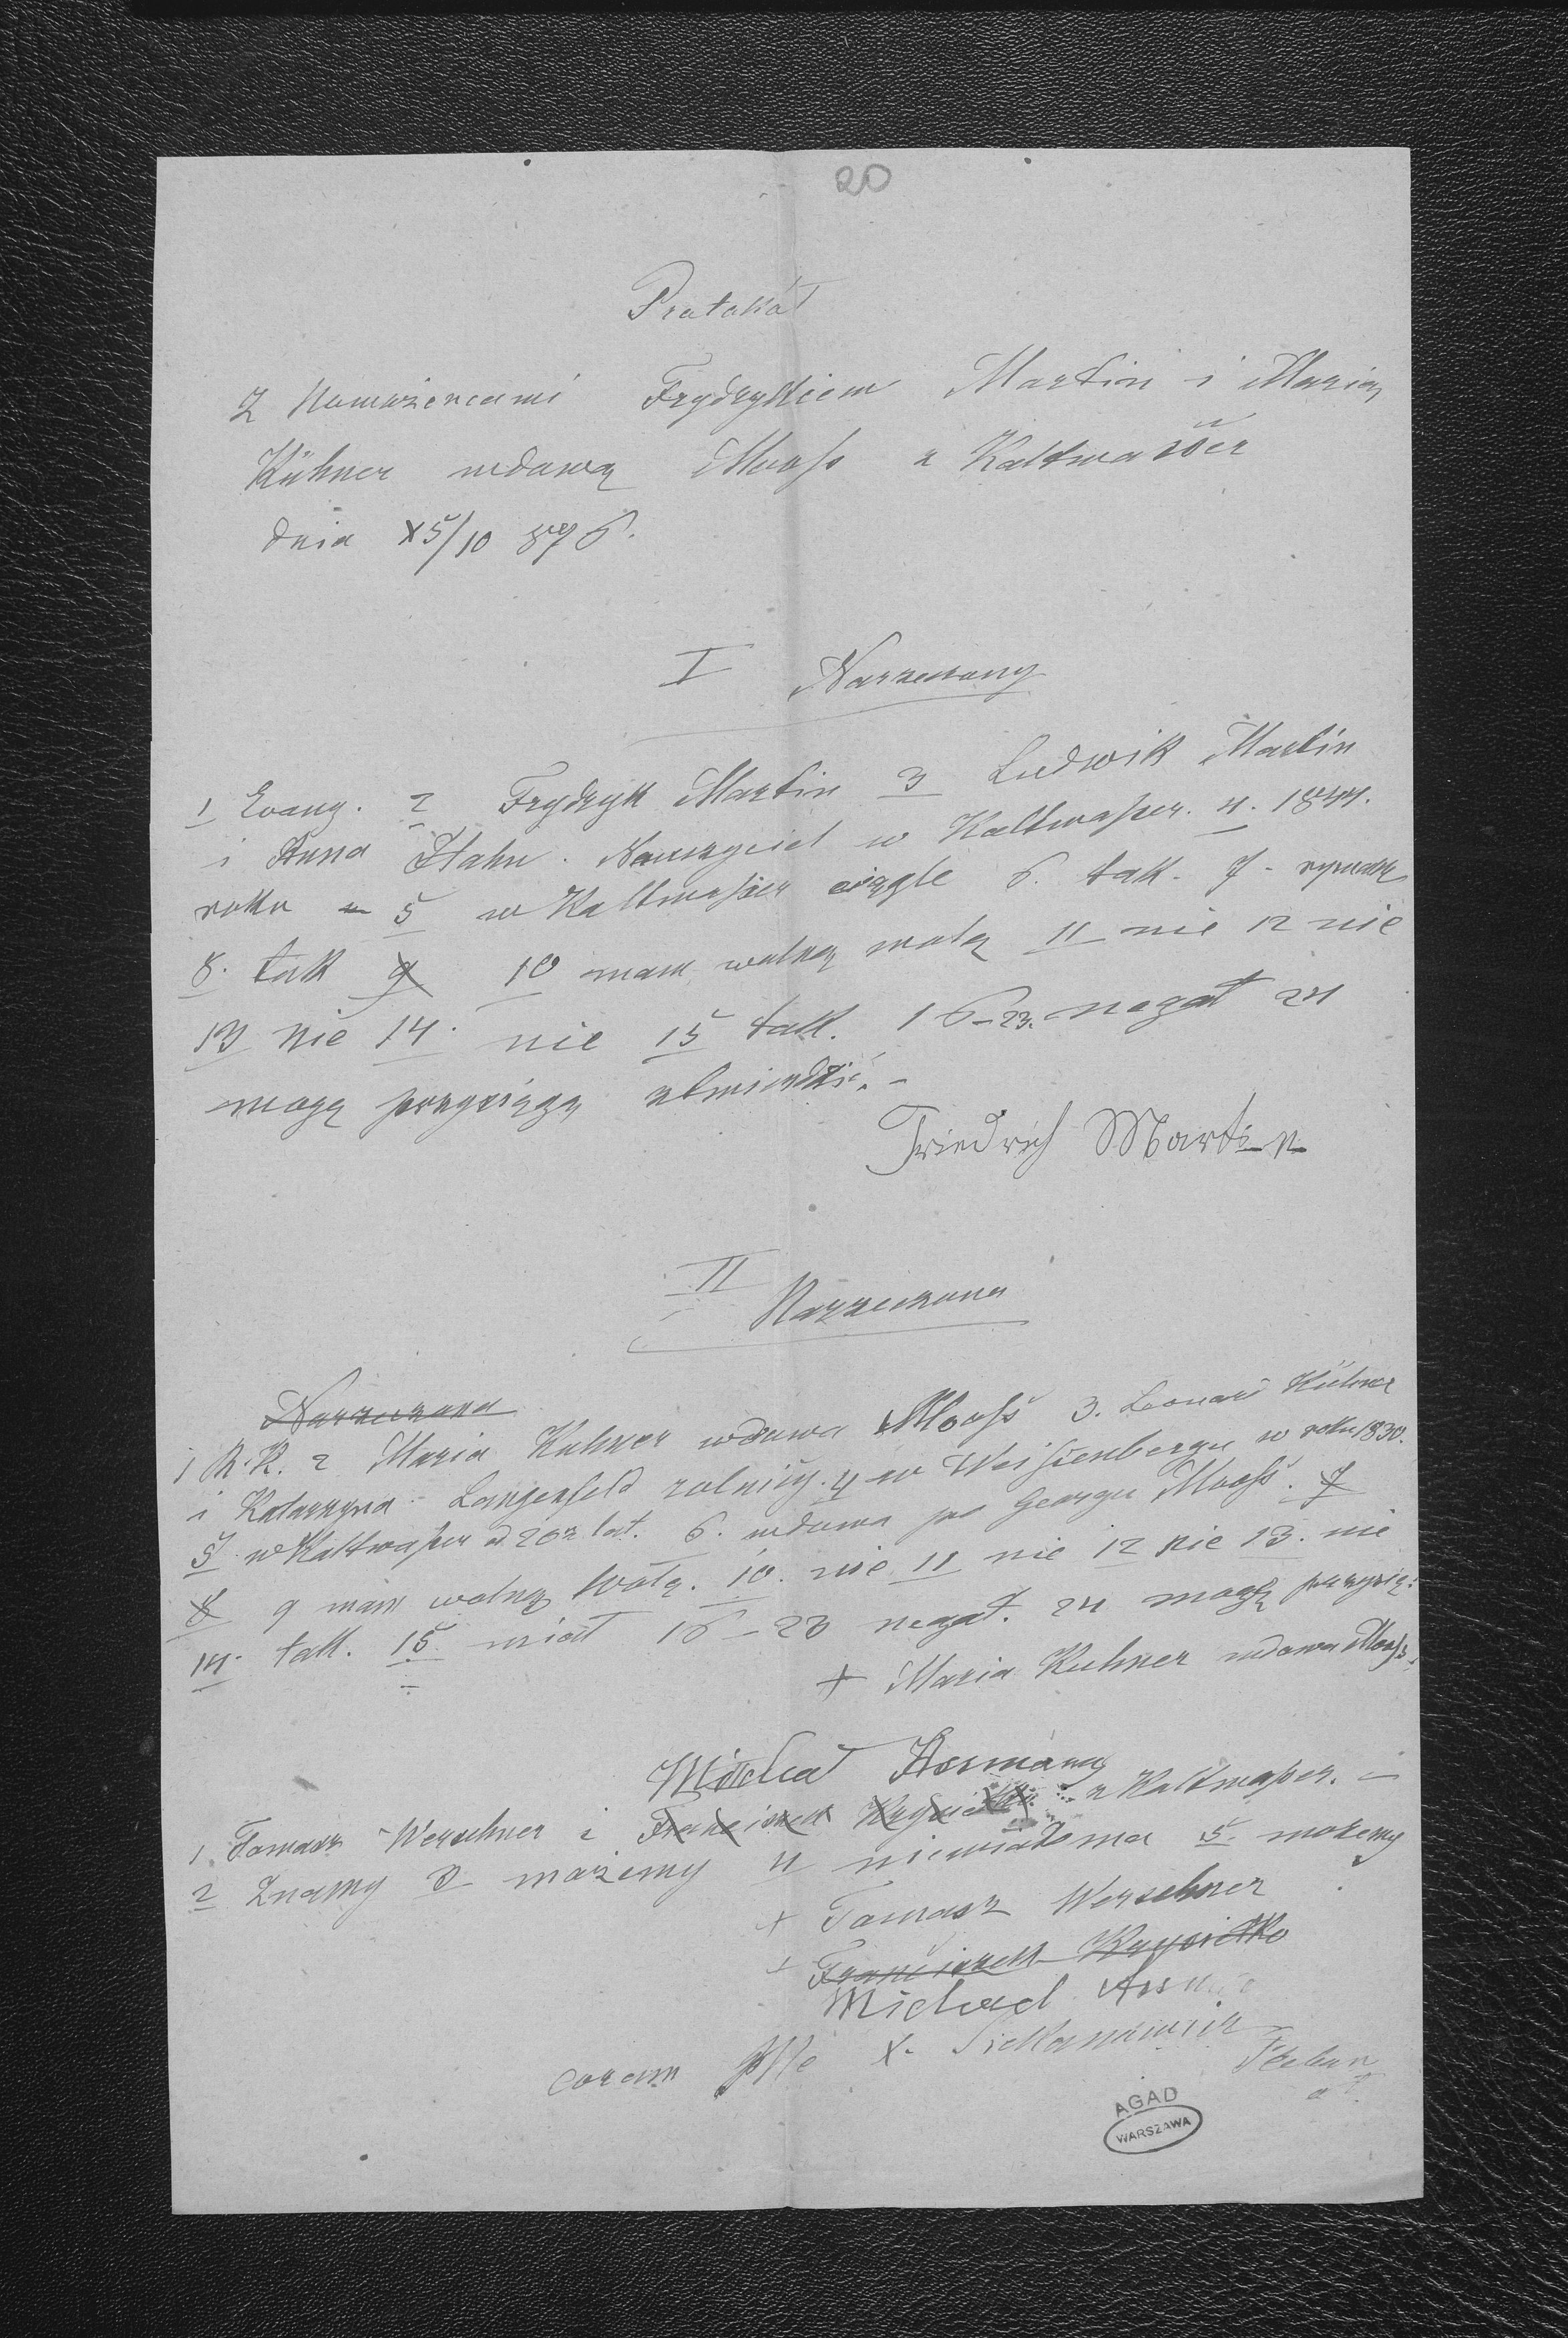 20
Protokół
Z Narzeżencami Frydrykiem Martin i Marią
Kühner wdową Mooß z Kaltwaßer
dnia X5/10 896.
I Narzeczony
1 Evang. 2 Frydryk Martin 3 Ludwik Martin
i Anna Hahn. Nauczyciel w Kaltwaßer. 4. 1844.
roku 5 w Kaltwaßer ciągle 6. tak. 7.
8. tak 9 10 mam wolną wolą 11 nie 12 nie
13 nie 14. nie 15 tak. 16-23. negat 24
mogę przysięgą stwierdzić. -
Friedrich Martin
II
Narzeczona
Narzeczona
1 R.K. 2 Maria Kuhner wdowa Mooß 3. Leonard Kühner
i Katarzyna Langenfeld rolnicy. 4 w Weißenbergu w roku 1830.
5 w Kaltwaßer od 20 lat. 6. wdowa po Georgu Mooß. 7
8 9 mam wolną wolą. 10. nie 11 nie 12 nie 13. nie
14. tak. 15. miał 16-23 negat. 24 mogę przysię:
+ Maria Kuhner wdowa Mooß.
Michał Assmann
1 Tomasz Werschner i Franciszek z Kaltwaßer. -
2 Znamy 3 możemy 4 niewiadoma 5. możemy
+ Tomasz Werschner
+ Franciszek
Michael
coram Me X.
AGAD
WARSZAWA